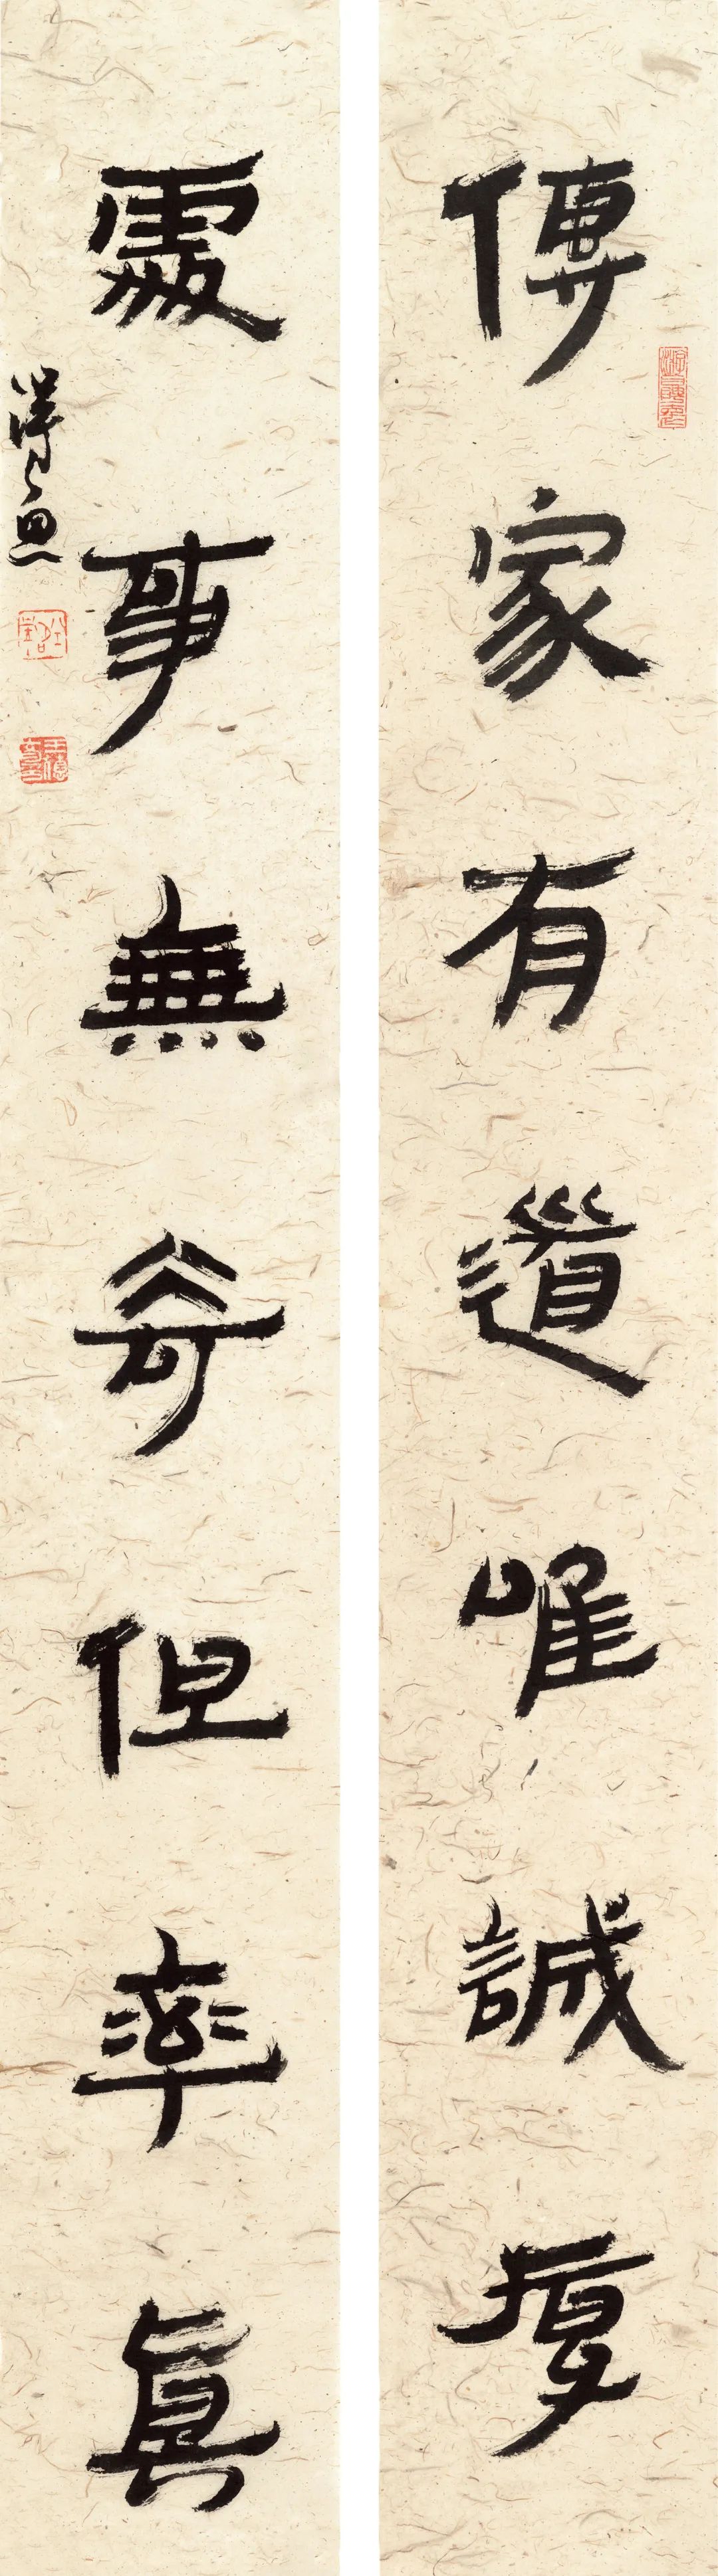 傳家有道唯誠厚
處事無奇但率真